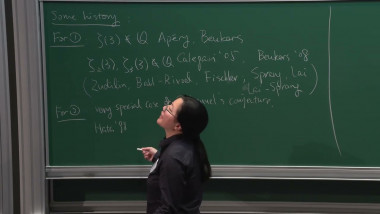 Some history.
For ① ζ(3) ∉ Q Apéry, Beukers
ζ₂(3), ζ₃(3) ∉ Q Calegari '05. Beukers '08
(Zudilin, Ball-Rivoal, Fischler, Sprang, Lai
Lai-Sprang)
For ② very special case conjecture.
Hata '9